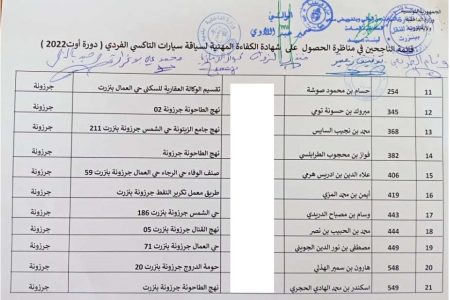 الجمهورية التونسية
وزارة الداخلية
الوالي
قائمة الناجحين في مناظرة الحصول على شهادة الكفاءة المهنية لسياقة سيارات التاكسي الفردي ( دورة أوت2022 )
11 254 حسام بن محمود صوشة تقسيم الوكالة العقارية للسكنى حي العمال بنزرت جرزونة
12 345 مبروك بن حسونة تومي نهج الطاحونة جرزونة 02 جرزونة
13 368 محمد بن نجيب السايس نهج جامع الزيتونة حي الشمس جرزونة بنزرت 211 جرزونة
14 382 فواز بن محجوب الطرابلسي نهج الطاحونة جرزونة جرزونة
15 406 علاء الدين بن ادريس هرمي صنف الوفاء حي الرجاء حي العمال جرزونة بنزرت 59 جرزونة
16 419 أيمن بن محمد المزي طريق معمل تكرير النفط جرزونة بنزرت جرزونة
17 443 وسام بن مصباح الدريدي حي الشمس جرزونة بنزرت 186 جرزونة
18 444 محمد بن الحبيب بن نصر نهج القنال جرزونة بنزرت 05 جرزونة
19 451 مصطفى بن نور الدين الجويني حي العمال جرزونة بنزرت 71 جرزونة
20 548 هارون بن سمير الهذلي حومة الدروج جرزونة بنزرت 20 جرزونة
21 549 اسكندر بن محمد الهادي الحجري نهج الطاحونة جرزونة بنزرت جرزونة